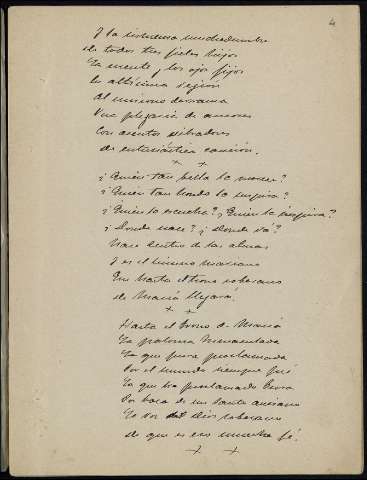 4
Y la inmensa muchedumbre
de todos tus fieles hijos
La mente y los ojos fijos
En altísima región
Al unísono derrama
Una plegaria de amores
Con acentos vibradores
de entusiástica canción.
+ +
¿Quién tan bella la mueve?
¿Quién tan honda la inspira?
¿Quién la escucha? ¿Quién la inspira?
¿Donde nace? ¿donde va?
Nace dentro de las almas
Y es el himno mariano
Que hasta el trono soberano
de María llegará.
+ +
Hasta el trono de María
La paloma Inmaculada
La que pura proclamada
Por el mundo siempre fué
La que ha proclamado
Por boca de un Santo anciano
La voz del Dios soberano
de que es eso nuestra fé.
+ +